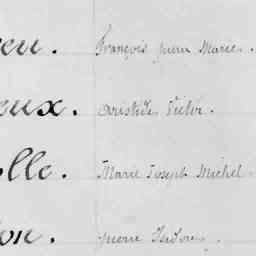 eu. François pierre Marie.
eux. aristide Victor.
olle. Marie Joseph Michel.
on. pierre Isidore